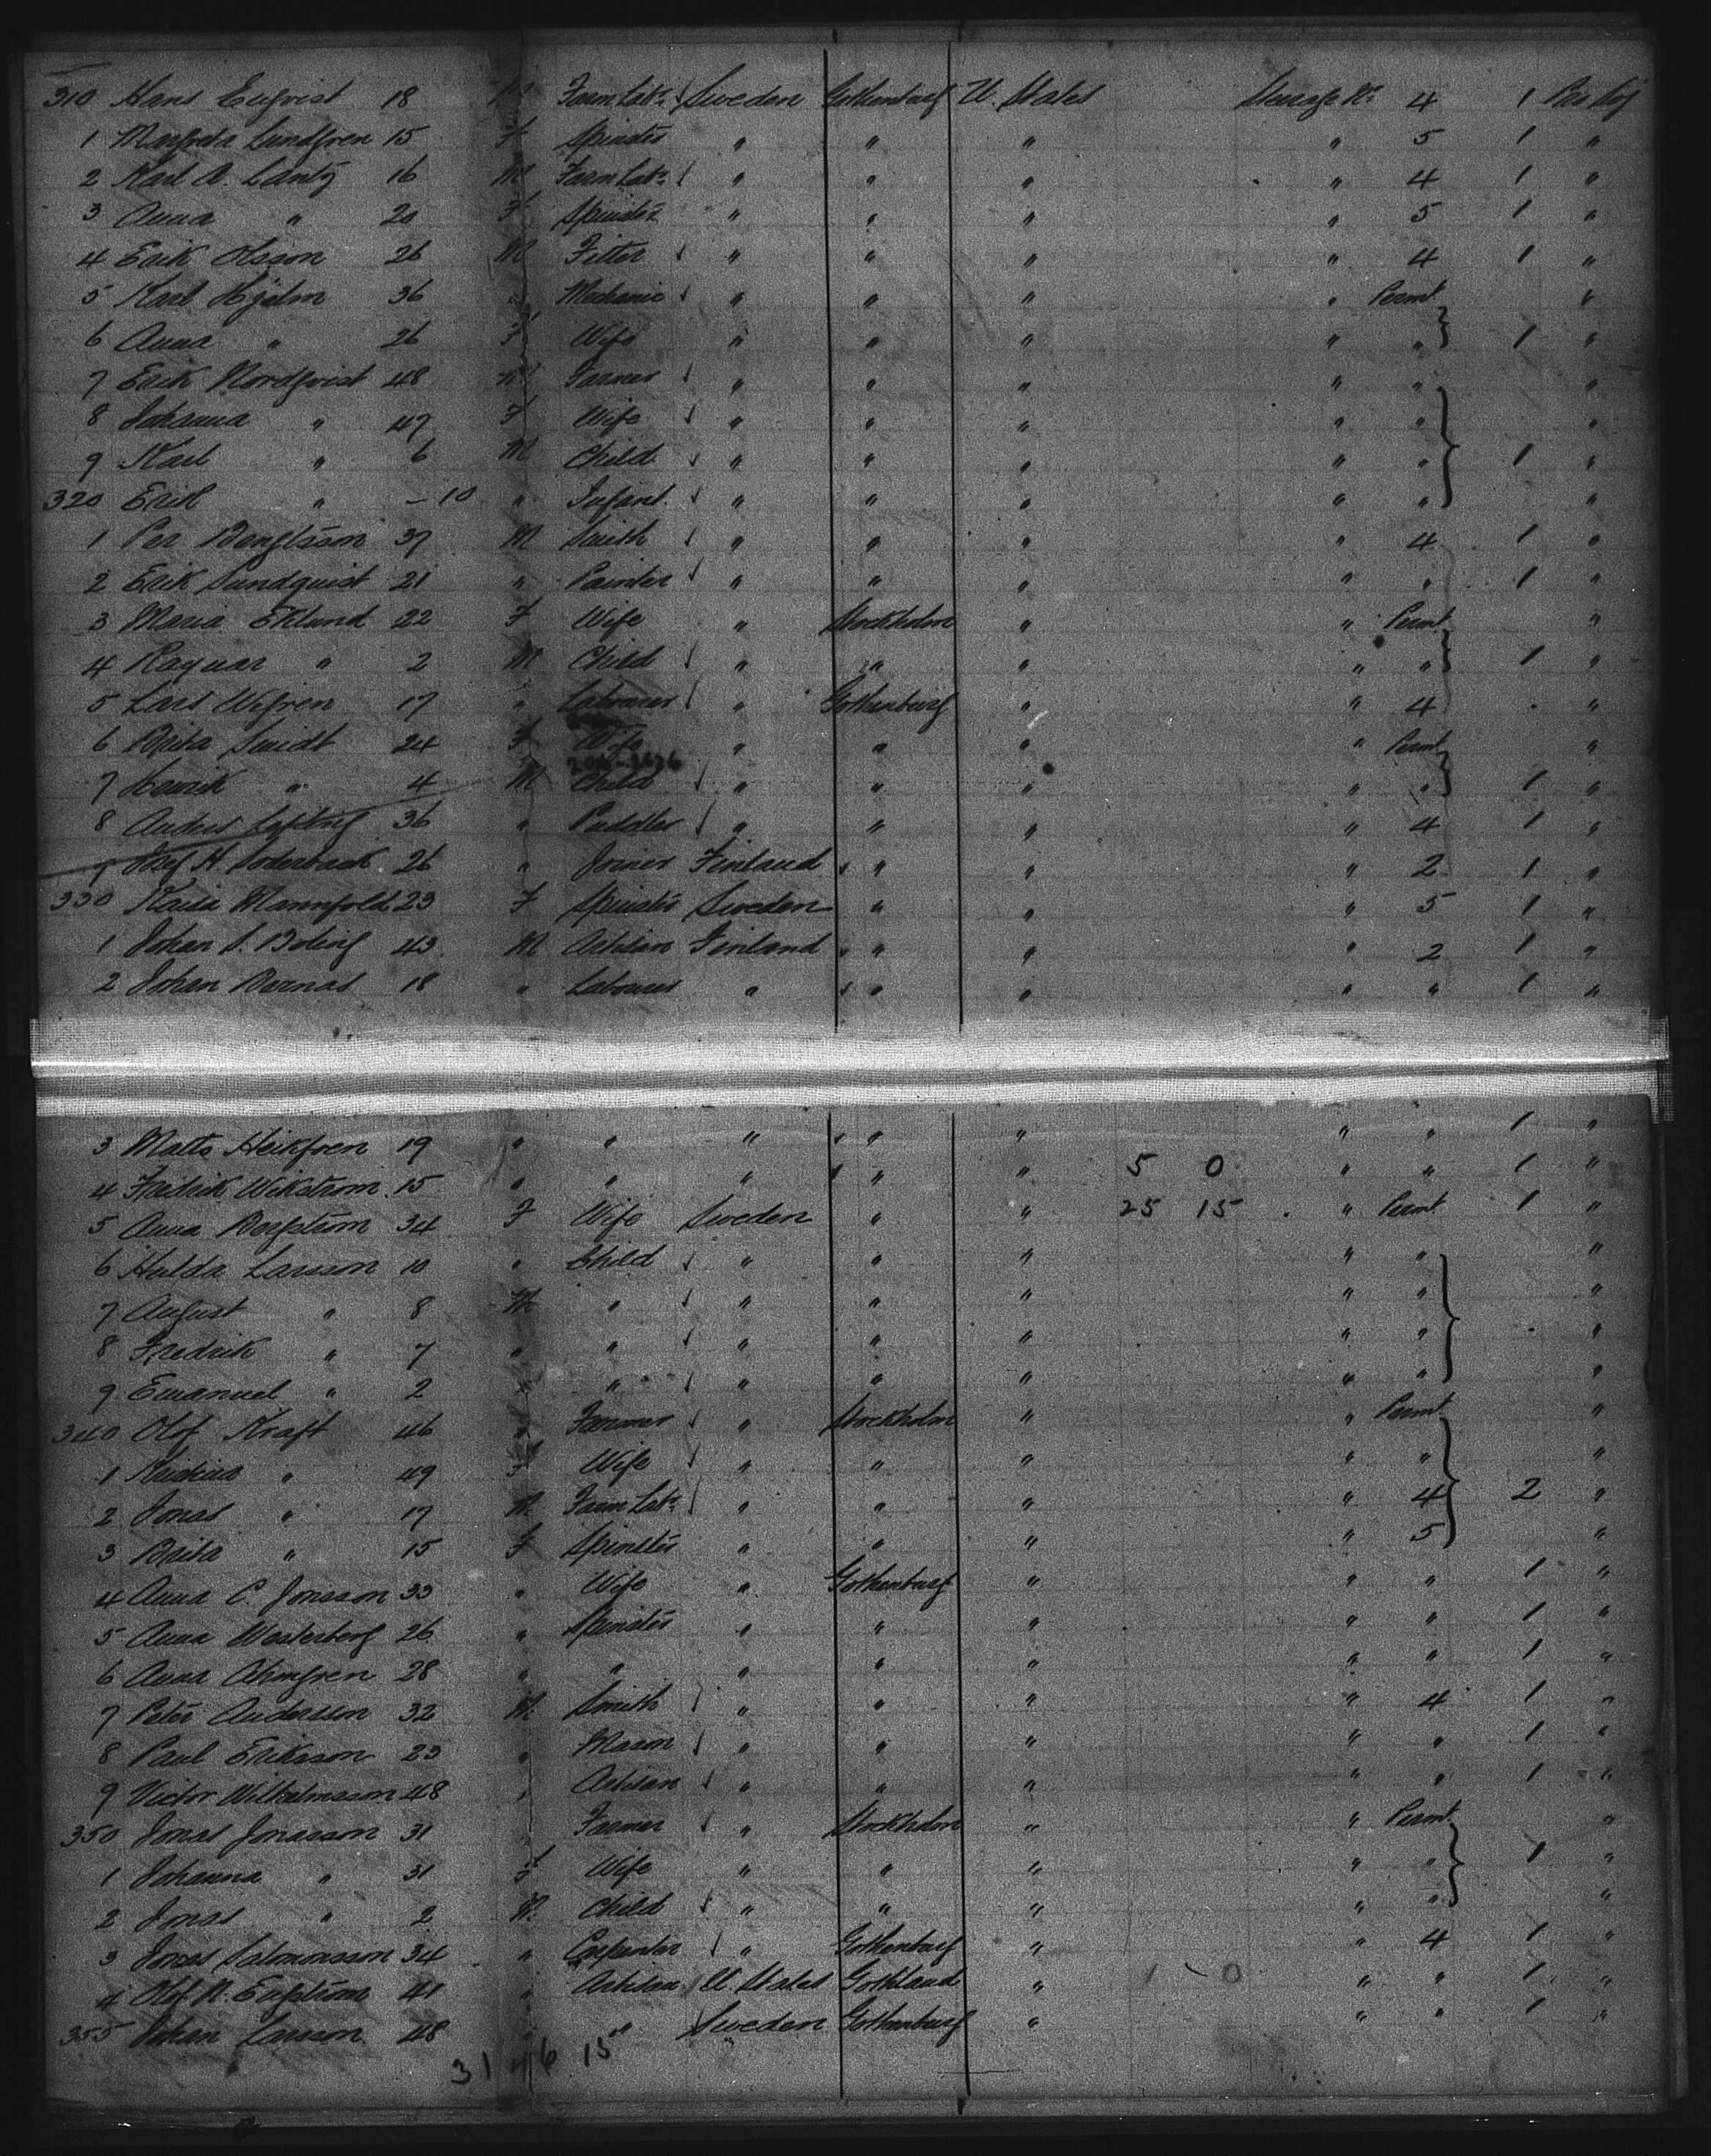 310 Hans Enqvist 18 M Farm Labr Sweden Gothenburg U. States Steerage No 4 1 Pro Soj
1 Lundgren 15 F Spinster " " " " 5 1 "
2 Karl A. Lantz 16 M Farm Labr " " " " 4 1 "
3 Anna " 20 F Spinster " " " " 5 1 "
4 Erik Olsson 26 M Fitter " " " " 4 1 "
5 Karl Hjelm 36 " Mechanic " " " " Permt "
6 Anna " 26 F Wife " " " " " 1 "
7 Erik Nordqvist 48 M Farmer " " " " " "
8 Johanna " 47 F Wife " " " " " "
9 Karl " 6 M Child " " " " " 1 "
320 Erik " - 10 " Infant " " " " " "
1 Per Bengtsson 37 M Smith " " " " 4 1 "
2 Erik Sundquist 21 " Painter " " " " " 1 "
3 Maria Eklund 22 F Wife " Stockholm " " Permt "
4 Ragnar " 2 M Child " " " " " 1 "
5 Lars Wigren 17 " Labourer " Gothenburg " " 4 "
6 Brita Smidt 24 F Wife " " " " Permt "
7 Henrik " 4 M Child " " " " " 1 "
8 Anders 36 " Puddler " " " " 4 1 "
9 H. Soderback 26 " Joiner Finland " " " 2 1 "
330 Kaisa Mannfold 23 F Spinster Sweden " " " 5 1 "
1 Johan S. Boling 43 M Artisan Finland " " " 2 1 "
2 Johan Barnas 18 " Labourer " " " " " 1 "
3 Matts Heikfren 19 " " " " " " " 1 "
4 Fredrik Wikstrom 15 " " " " " 5 0 " " 1 "
5 Anna Bergstrom 34 F Wife Sweden " " 25 15 " Permt 1 "
6 Hulda Larsson 10 " Child " " " " " "
7 August " 8 M " " " " " " "
8 Fredrik " 7 " " " " " " " "
9 Emanuel " 2 " " " " " " " "
340 Olof Kraft 46 " Farmer " Stockholm " " Permt "
1 Kristina " 49 F Wife " " " " " "
2 Jonas " 17 M Farm Labr " " " " 4 2 "
3 Brita " 15 F Spinster " " " " 5 "
4 Anna C. Jonsson 33 " Wife " Gothenburg " " " 1 "
5 Anna Westerberg 26 " Spinster " " " " " 1 "
6 Anna Almgren 28 " " " " " " " 1 "
7 Peter Andersson 32 M Smith " " " " 4 1 "
8 Paul Eriksson 23 " Mason " " " " " 1 "
9 Victor Wilhelmsson 48 " Artisan " " " " " 1 "
350 Jonas Jonasson 31 " Farmer " Stockholm " " Permt "
1 Johanna " 31 F Wife " " " " " 1 "
2 Jonas " 2 M Child " " " " " "
3 Jonas Salomonsson 34 " Carpenter " Gothenburg " " 4 1 "
4 Olof N. Engstrom 41 " Artisan U. States Gothland " " " 1 "
355 Johan Larsson 48 " " Sweden Gothenburg " " " 1 "